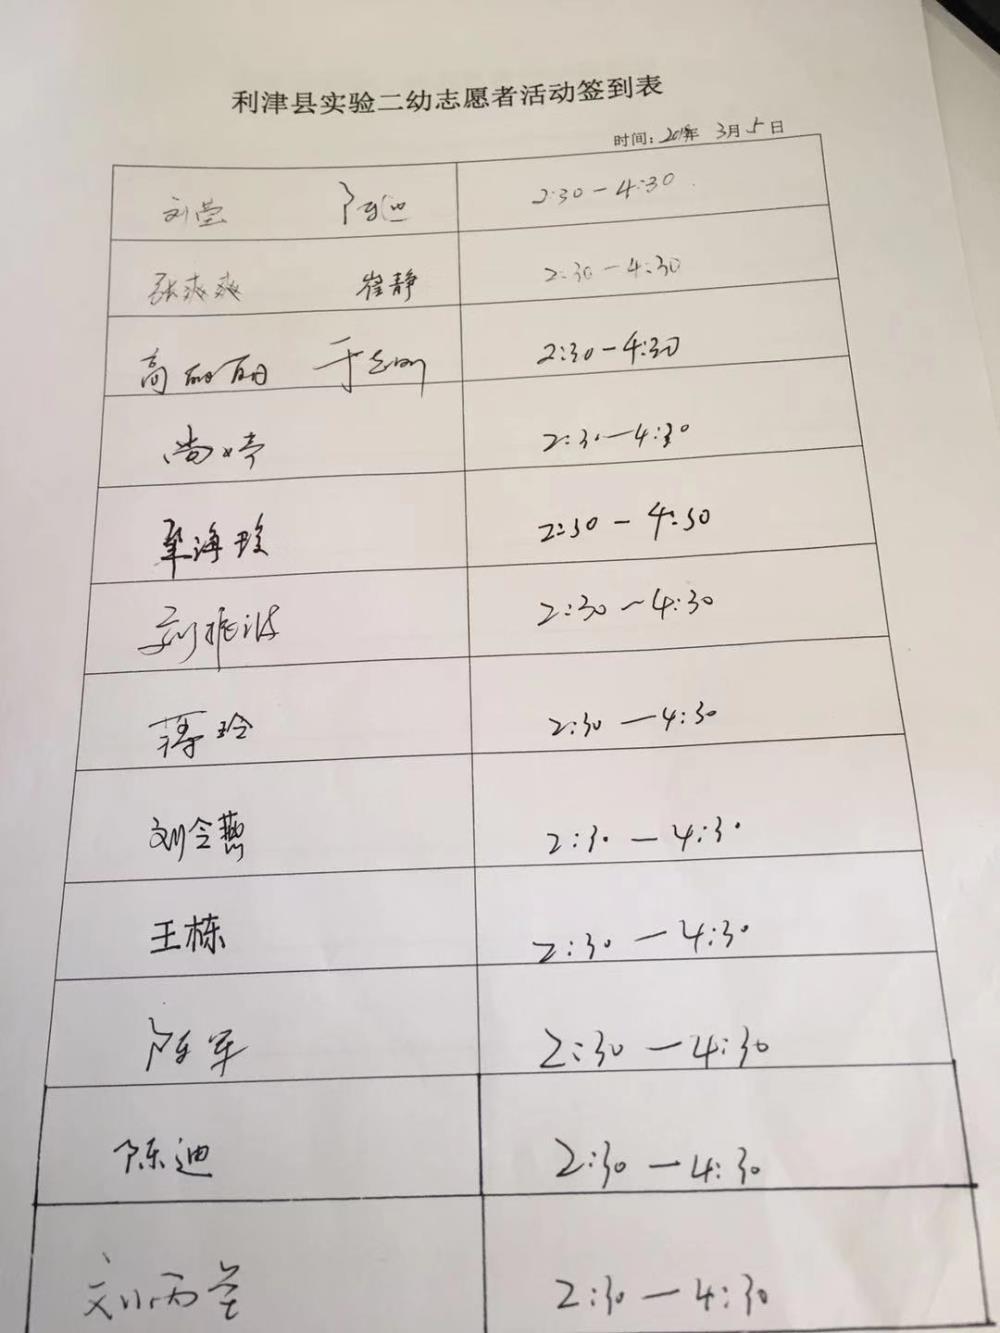 利津县实验二幼志愿者活动签到表
时间：2019年 3月5日
刘莹 陈迪 2:30-4:30
张爽爽 崔静 2:30-4:30
高丽丽 于志刚 2:30-4:30
尚婷 2:30-4:30
海 2:30-4:30
刘振波 2:30-4:30
蒋玲 2:30-4:30
刘令燕 2:30-4:30
王栋 2:30-4:30
陈军 2:30-4:30
陈迪 2:30-4:30
刘雨莹 2:30-4:30